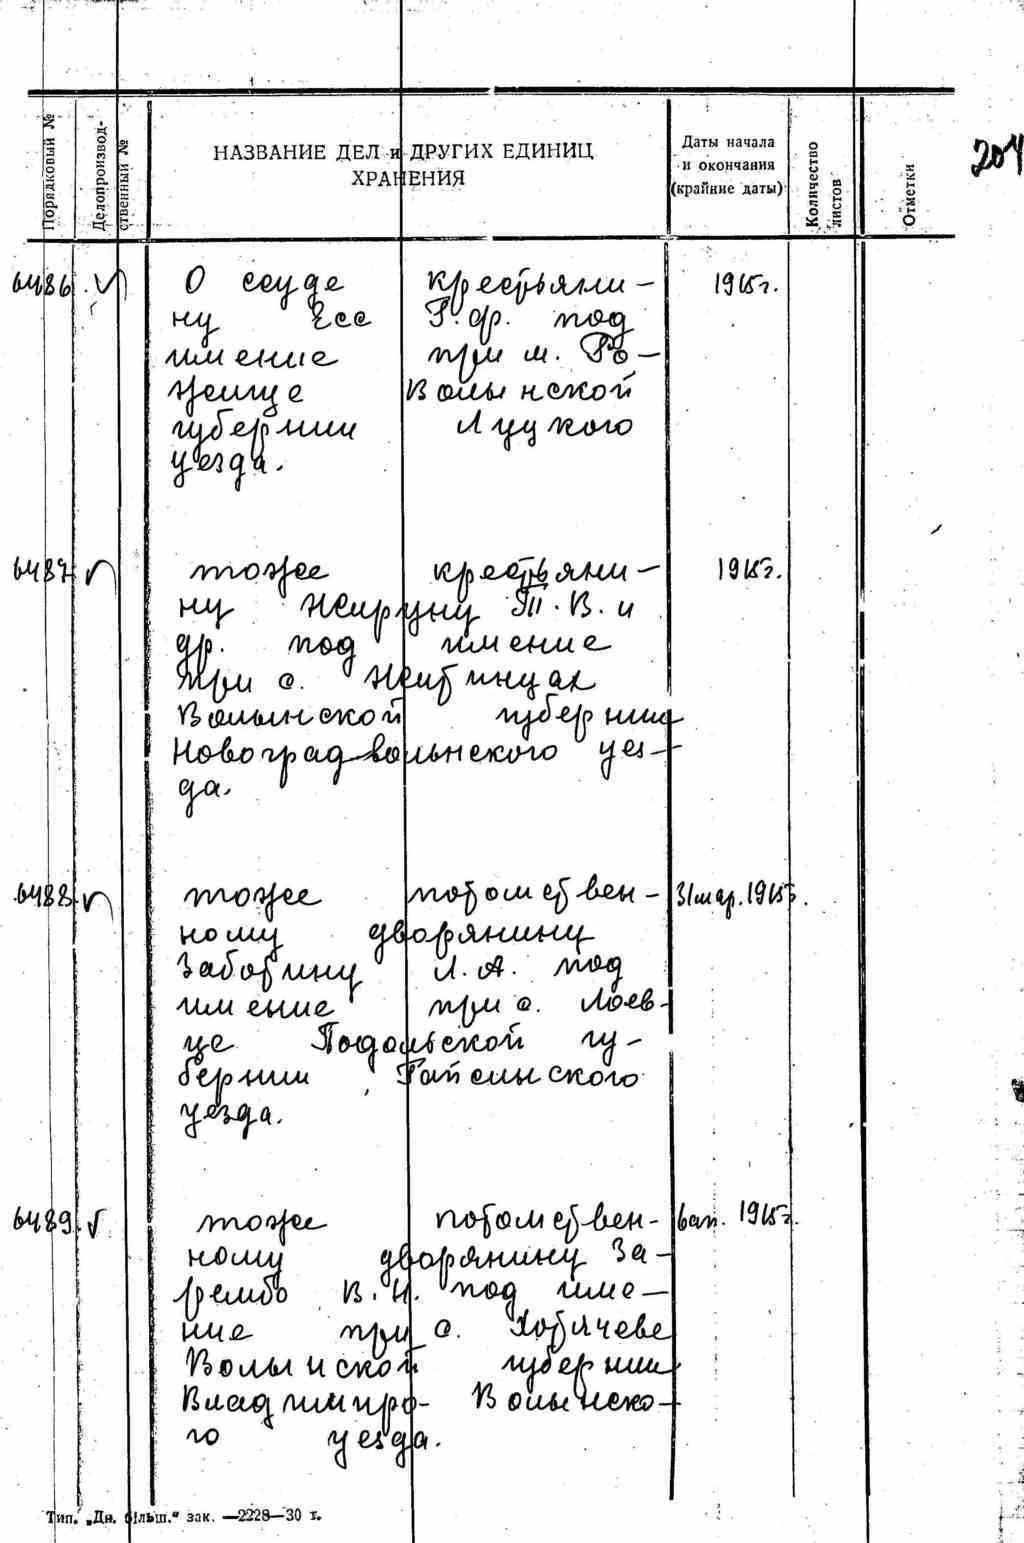 204
Порядковый №
Делопроизвод-
ственный №
НАЗВАНИЕ ДЕЛ и ДРУГИХ ЕДИНИЦ
ХРАНЕНИЯ
Даты начала
и окончания
(крайние даты)
Количество
листов
Отметки
6486 О ссуде крестьяни- 1915г.
ну Гесс Г.Ф. под
имение при м. Ро-
жище Волынской
губернии Луцкого
уезда.
6487 тоже крестьяни- 1915г.
ну Жируну П. В. и
др. под имение
при с. Жабинцах
Волынской губернии
Новоградволынского уез-
да.
6488 тоже потомствен- 31 мар. 1915г.
ному дворянину
Заботину Л. А. под
имение при с. Лоев-
це Подольской гу-
бернии Гайсинского
уезда.
6489 тоже потомствен- 6 ап. 1915г.
ному дворянину За-
рембо В. Н. под име-
ние при с. Хотячеве
Волынской губернии
Владимиро- Волынско-
го уезда.
Тип. „Дн. більш.“ зак. —2228—30 т.